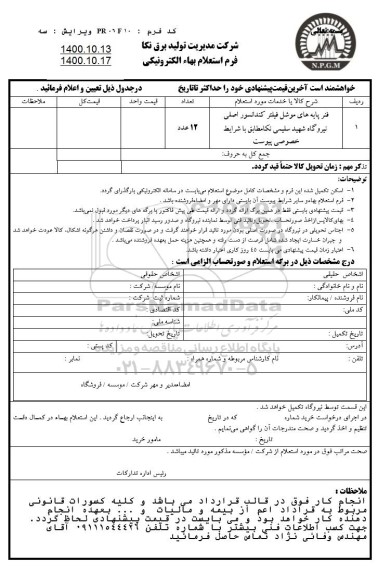 کد فرم : PR-06F10 ویرایش : سه
1400.10.13
1400.10.17
شرکت مدیریت تولید برق نکا
فرم استعلام بهاء الکترونیکی
بسمه تعالی
N.P.G.M
خواهشمند است آخرین قیمت پیشنهادی خود را حداکثر تا تاریخ درجدول ذیل تعیین و اعلام فرمائید .
ردیف شرح کالا یا خدمات مورد استعلام تعداد قیمت واحد قیمت کل ملاحظات
۱ فنر پایه های موشل فیلتر کندانسور اصلی ۱۲ عدد
نیروگاه شهید سلیمی نکا مطابق با شرایط
خصوصی پیوست
جمع کل به حروف:
تذکر مهم : زمان تحویل کالا حتماً قید گردد.
توضیحات:
۱- اسکن تکمیل شده این فرم و مشخصات کامل موضوع استعلام می‌بایست در سامانه الکترونیکی بارگذاری گردد.
۲- فرم استعلام بهاء و سایر شرایط پیوست آن بایستی دارای مهر و امضاء فروشنده باشد.
۳- قیمت پیشنهادی بایستی فقط در همین برگ ارائه گردد و ارائه قیمت طی پیش فاکتور یا برگه های دیگر مورد قبول نمی‌باشد.
۶- اعتبار زمان قیمت پیشنهادی می بایست ۱۵ روز کاری اعتبار داشته باشد.
درج مشخصات ذیل در برگه استعلام و صورتحساب الزامی است :
اشخاص حقیقی اشخاص حقوقی
نام و نام خانوادگی : نام موسسه/ شرکت :
نام فروشنده / پیمانکار: شماره ثبت شرکت :
کد ملی: کد اقتصادی :
شناسه ملی:
تاریخ تکمیل : تاریخ تحویل:
آدرس: کد پستی :
تلفن : نام کارشناس مربوطه و شماره همراه : نمابر :
ParsNamadData
پایگاه اطلاع رسانی مناقصه و مزایده
۰۲۱-۸۸۳۴۹۶۷۰-۵
امضاء مدیر و مهر شرکت / موسسه / فروشگاه
این قسمت توسط نیروگاه تکمیل خواهد شد .
در اجرای درخواست خرید شماره که در تاریخ به اینجانب ارجاع گردید . این استعلام بهاء به کمال دقت
تنظیم و اخذ گردید و صحت مندرجات آن را گواهی می‌نمایم .
تاریخ : مامور خرید
صحت مراتب فوق در مورد استعلام از شرکت / مؤسسه مذکور مورد تائید میباشد .
رئیس اداره تدارکات
ملاحظات :
انجام کار فوق در قالب قرارداد می باشد و کلیه کسورات قانونی
مربوط به قراداد اعم از بیمه و مالیات و ... بعهده انجام
دهنده کار خواهد بود و می بایست در قیمت پیشنهادی لحاظ گردد.
جهت کسب اطلاعات فنی بیشتر با شماره تلفن ۰۹۱۱۱۵۴۴۴۲۶ آقای
مهندس وفائی نژاد تماس حاصل فرمائید